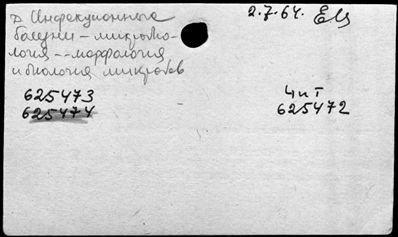 Инфекционные
болезни - микробио-
логия -- морфология
и биология микробов
2.7.64.
625473
625474
4иI
625472